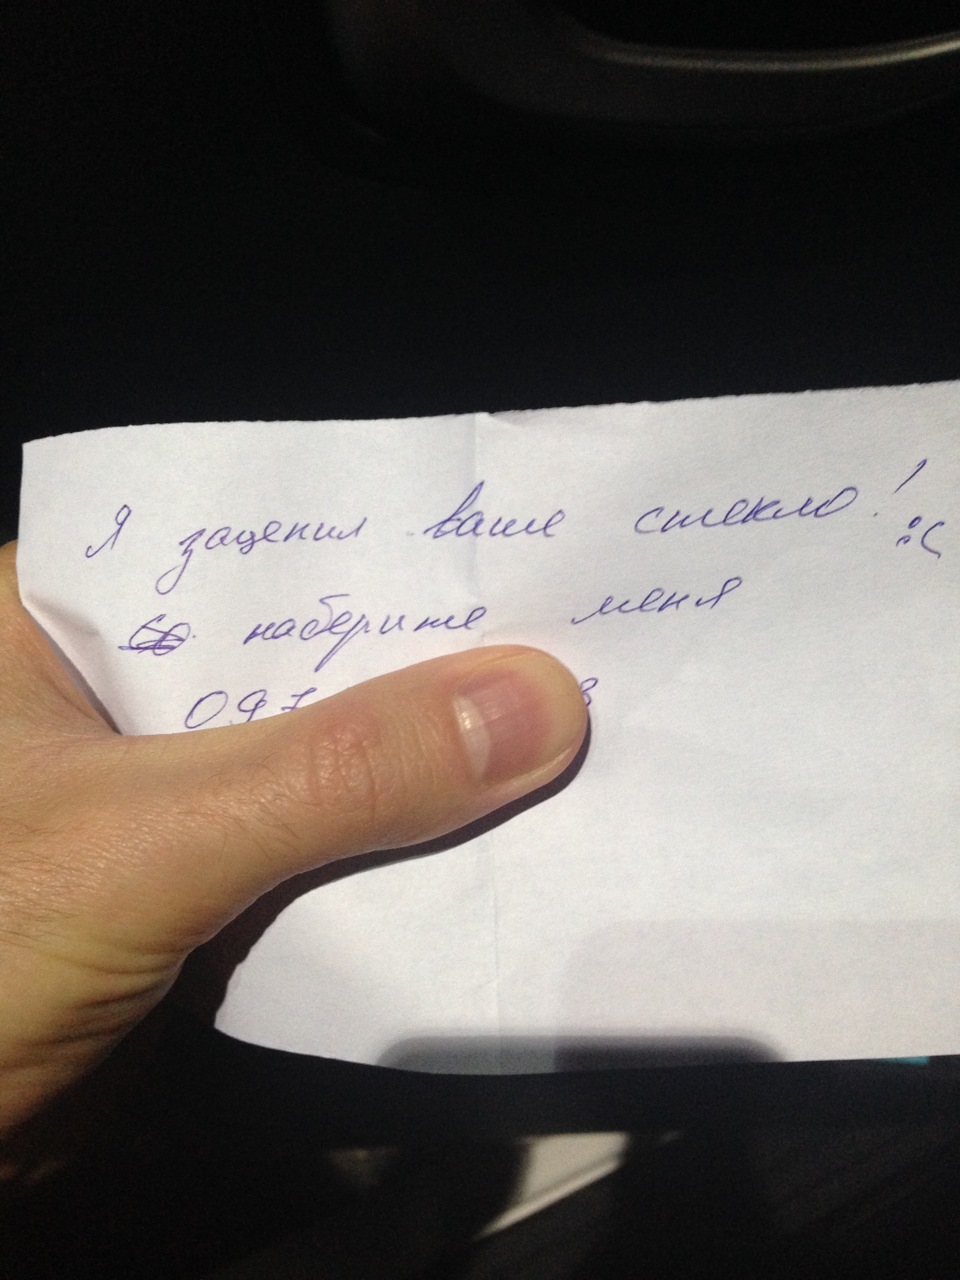 Я зацепил ваше стекло! :(
наберите меня
097 8